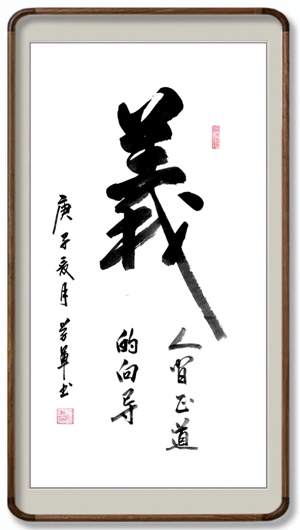 義
人間正道
的向导
庚子夏月 书